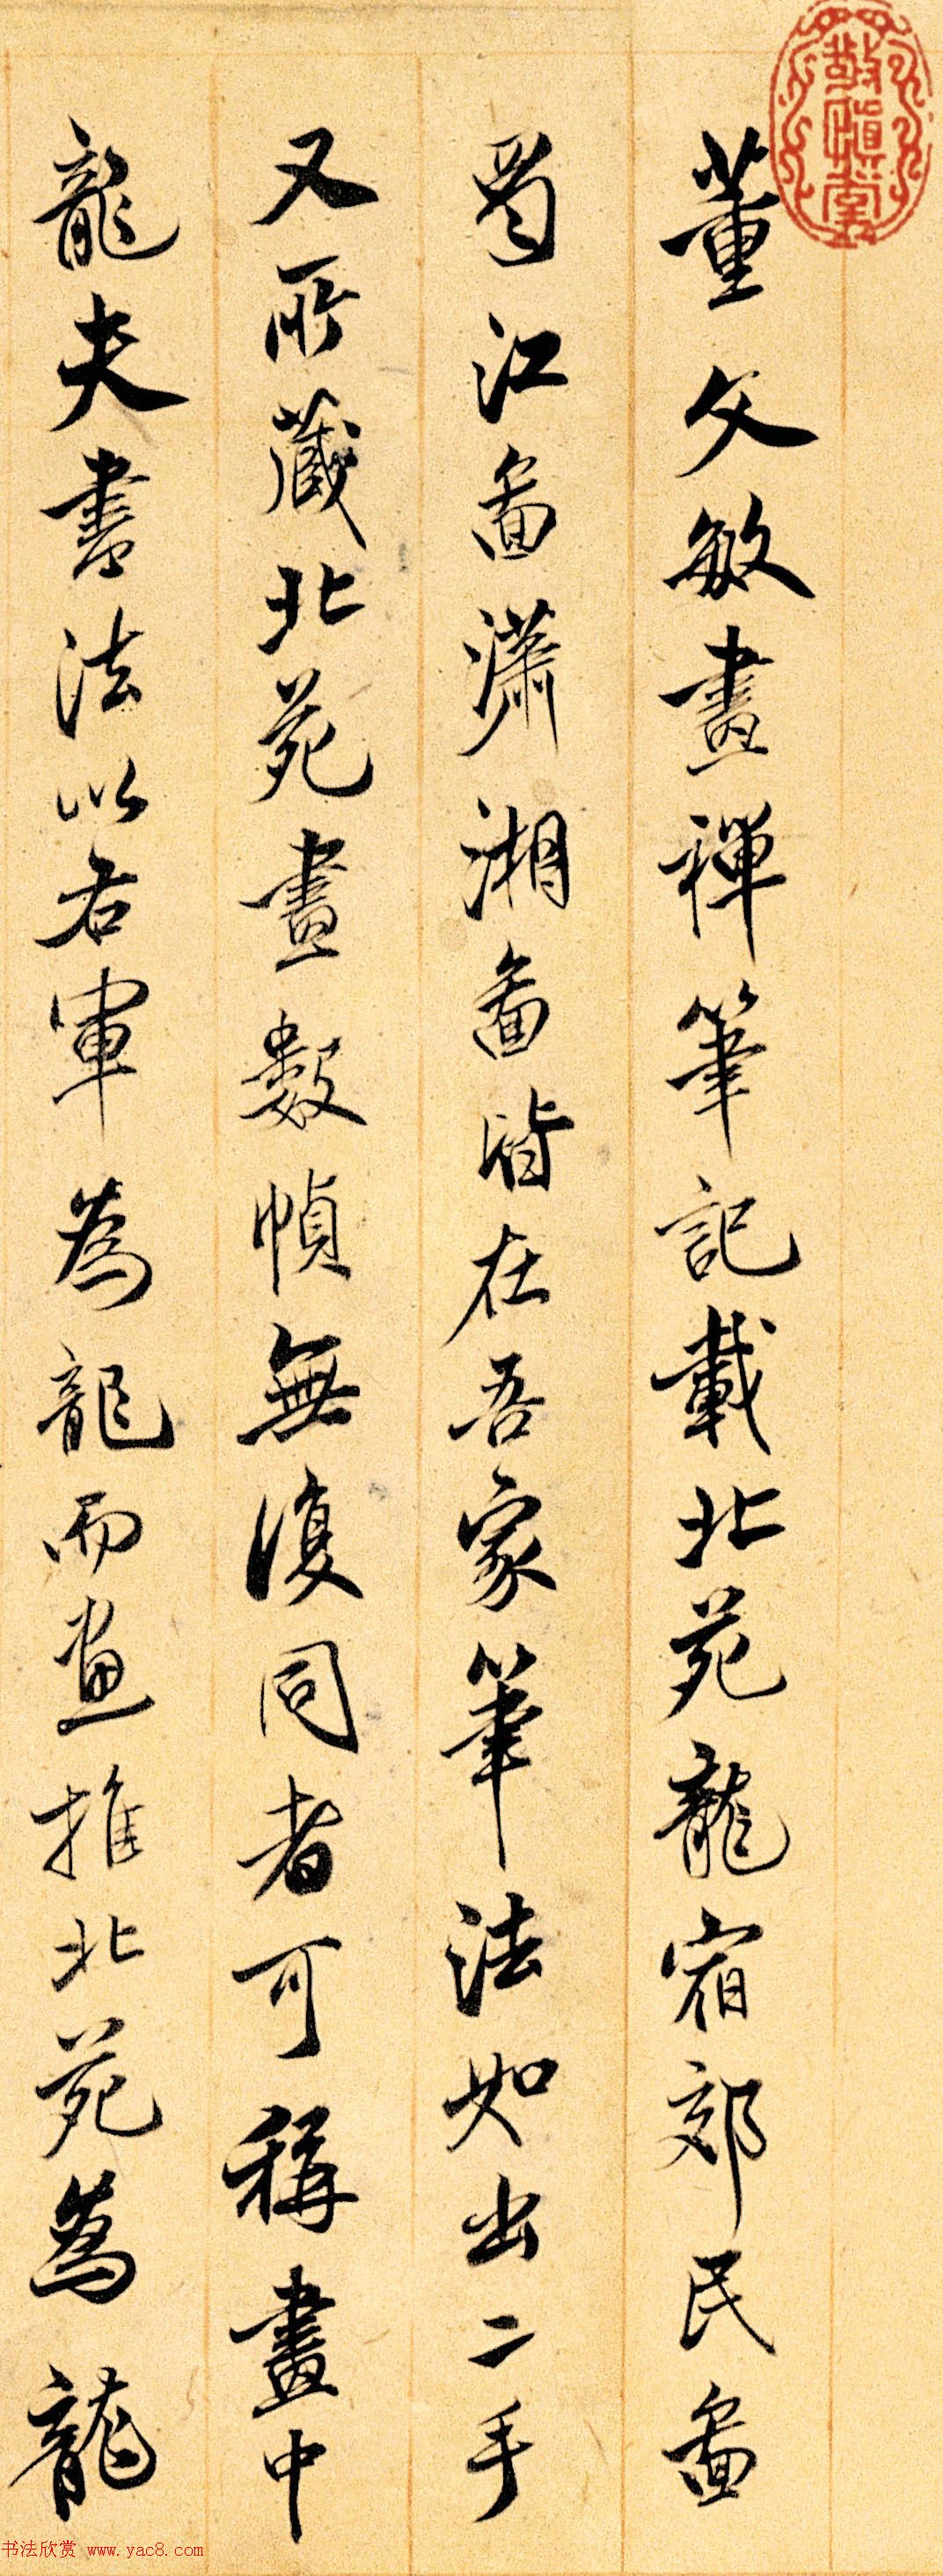 敬慎堂
董文敏畫禪筆記載北苑龍宿郊民啚
蜀江啚瀟湘啚皆在吾家筆法如出二手
又所藏北苑畫數幀無復同者可稱畫中
龍夫書法以右軍為龍而畫推北苑為龍
书法欣赏 www.yac8.com